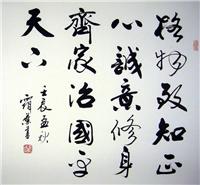 格物致知正
心誠意修身
齊家治國平
天下
壬辰孟秋